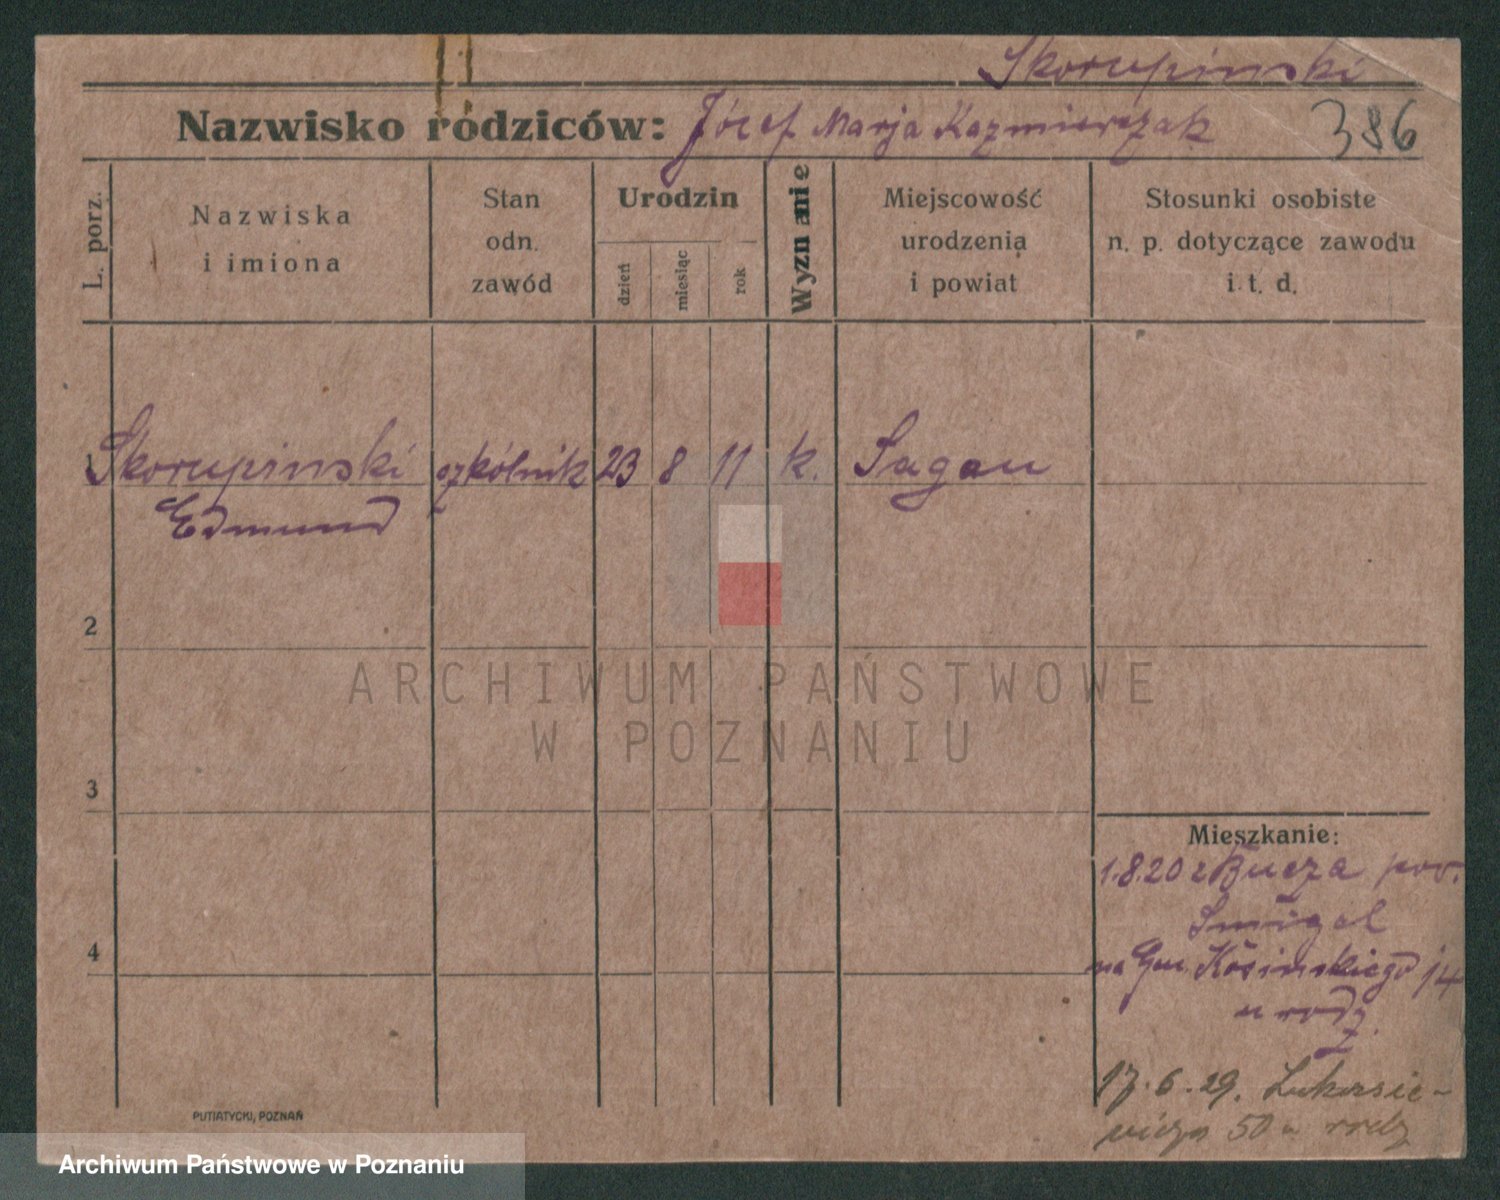 Skorupinski
Nazwisko rodziców: Józef Marja Kazmierczak 386
L. porz.
Nazwiska
i imiona
Stan
odn.
zawód
Urodzin
dzień
miesiąc
rok
Wyznanie
Miejscowość
urodzenia
i powiat
Stosunki osobiste
n. p. dotyczące zawodu
i t. d.
1 Skorupinski szkólnik 23 8 11 k. Sagan
Edmund
2
ARCHIWUM PAŃSTWOWE
W POZNANIU
3
4
Mieszkanie:
1.8.20 z Bucza pow.
Smigel
na Gen. Kosinskiego 14
u rodz.
17.6.29. Lukasie-
wicza 50 u rodz
PUTIATYCKI, POZNAŃ
Archiwum Państwowe w Poznaniu